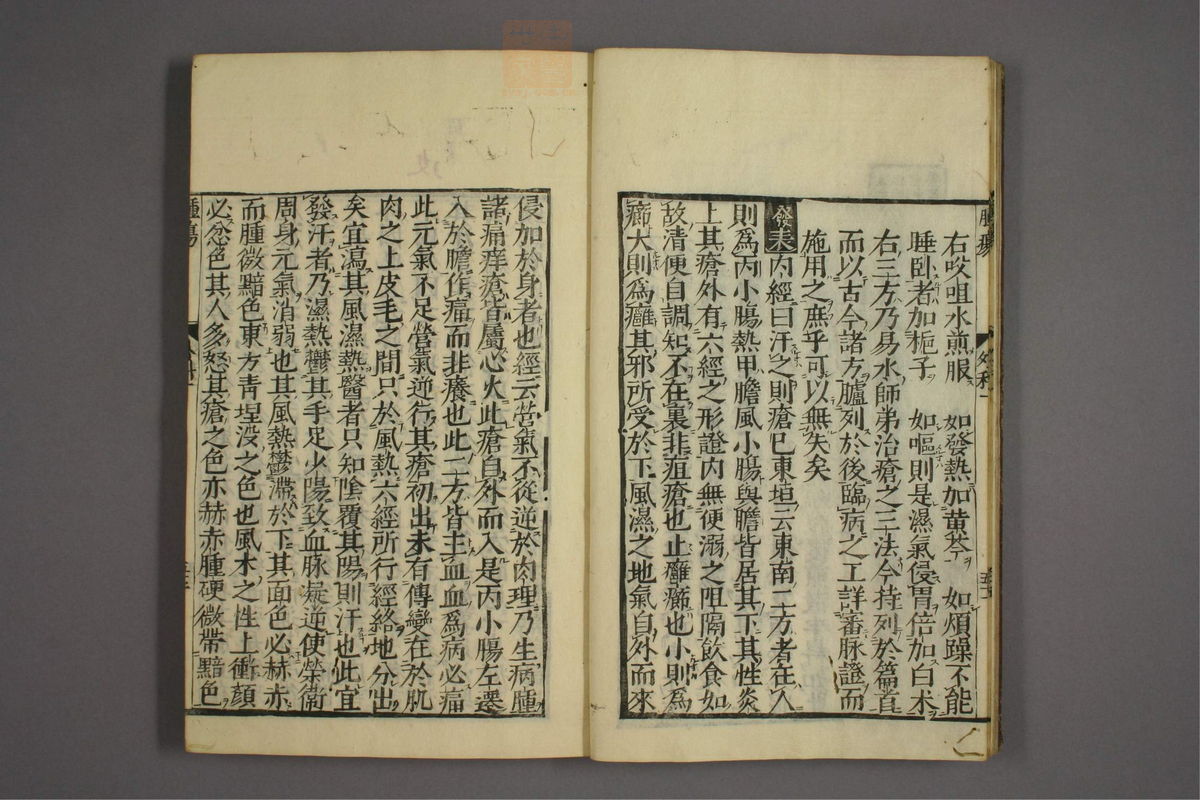 右㕮咀水煎服　如發熱加黄芩　如煩躁不能
睡卧者加梔子　如嘔則是濕氣侵胃倍加白术
右三方乃易水師弟治瘡之三法今持列於篇首
而以古今諸方臚列於後臨病之工詳審脉證而
施用之庶乎可以無失矣
發表内經曰汗之則瘡已東垣云東南二方者在人
則為丙小腸熱甲膽風小腸與膽皆居其下其性炎
上其瘡外有六經之形證内無便溺之阻隔飲食如
故清便自調知不在裏非疽瘡也止癰癤也小則為
癤大則為癰其邪所受於下風濕之地氣自外而來
侵加於身者也經云營氣不從逆於肉理乃生病腫
諸痛痒瘡皆屬心火此瘡自外而入是丙小腸左遷
入於膽作痛而非癢也此二方皆主血血爲病必痛
此元氣不足營氣逆行其瘡初出未有傳變在於肌
肉之上皮毛之間只於風熱六經所行經絡地分出
矣宜瀉其風濕熱醫者只知陰覆其陽則汗也此宜
發汗者乃濕熱鬱其手足少陽致血脉凝逆使榮衛
周身元氣消弱也其風熱鬱滯於下其面色必赫赤
而腫微黯色東方青埋没之色也風木之性上衝顔
必忿色其人多怒其瘡之色亦赫赤腫硬微帶黯色